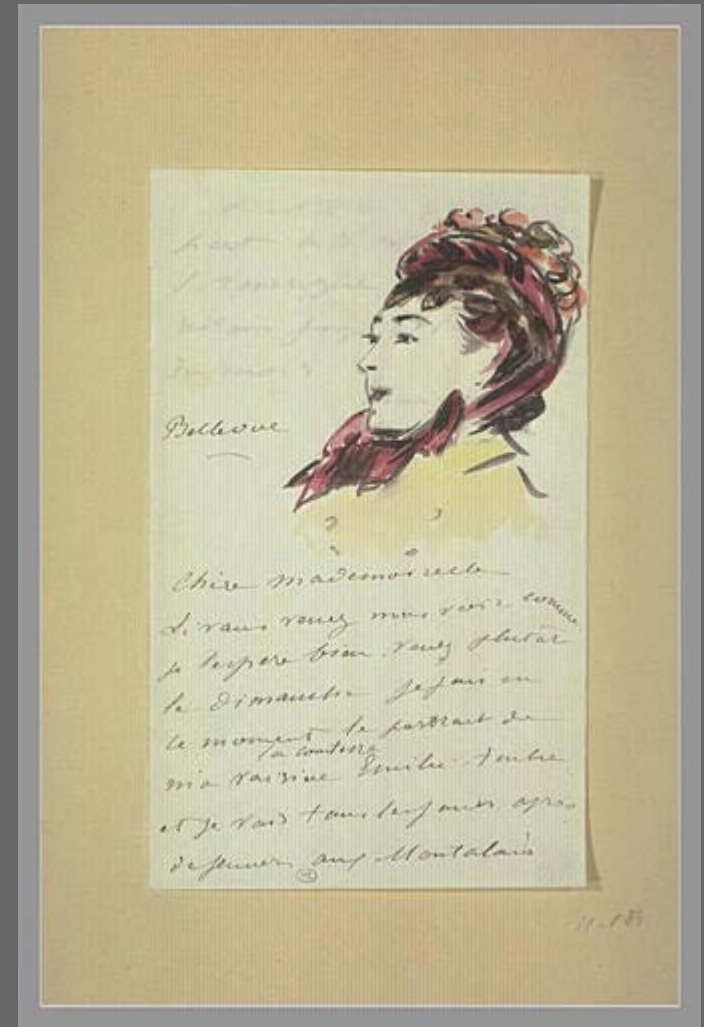 Bellevue
Chère mademoiselle
Si vous venez nous voir comme
je l'espère bien venez plutôt
le Dimanche je fais en
ce moment le portrait de
la comtesse
ma voisine Emilie Ambre
et je vais tous les jours après
déjeuner aux Montalais